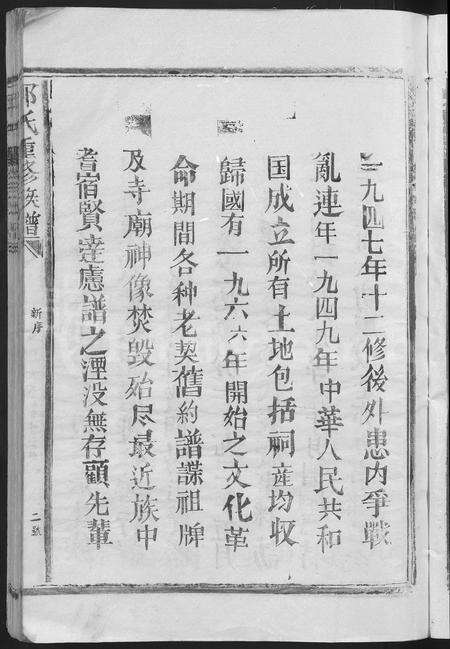 一九四七年十二修後外患内爭戰
亂連年一九四九年中華人民共和
国成立所有土地包括祠産均收
歸國有一九六六年開始之文化革
命期間各种老契舊約譜諜祖牌
及寺廟神像焚毀殆尽最近族中
耆宿賢達慮譜之湮没無存顧先輩
氏重修族譜
新序
二號